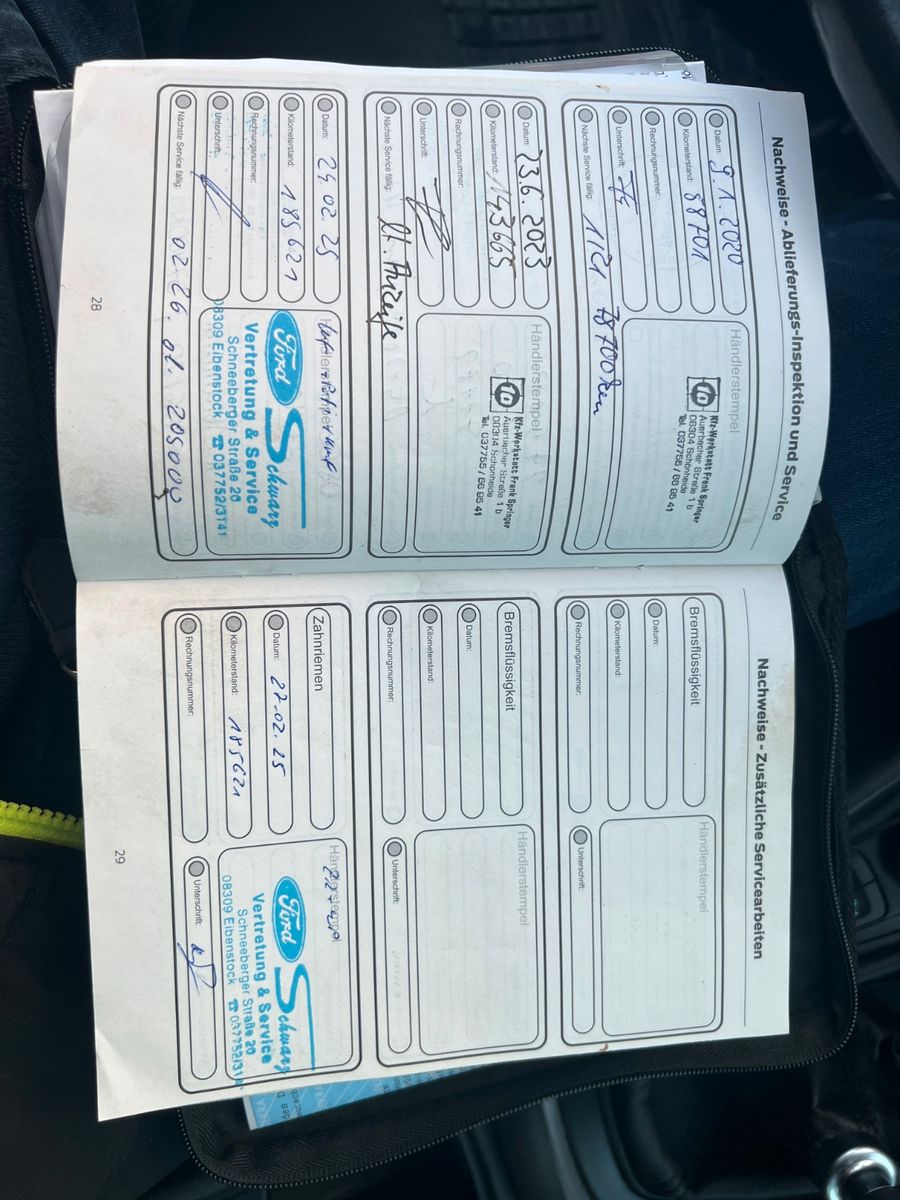 Nachweise - Ablieferungs-Inspektion und Service
Datum: 9.1.2020
Kilometerstand: 58701
Rechnungsnummer:
Unterschrift:
Nächste Service fällig: 1/21 78700km
Händlerstempel
Kfz-Werkstatt Frank Springer
Auerbacher Straße 1 b
08304 Schönheide
Tel. 037755 / 66 95 41
Datum: 23.6.2023
Kilometerstand: 143665
Rechnungsnummer:
Unterschrift:
Nächste Service fällig: lt. Anzeige
Händlerstempel
Kfz-Werkstatt Frank Springer
Auerbacher Straße 1 b
08304 Schönheide
Tel. 037755 / 66 95 41
Datum: 27.02.25
Kilometerstand: 185621
Rechnungsnummer:
Unterschrift:
Nächste Service fällig: 02.26. od. 205000
Händlerstempel
Ford Schwarz
Vertretung & Service
Schneeberger Straße 20
08309 Eibenstock ☎ 037752/3141
28
Nachweise - Zusätzliche Servicearbeiten
Bremsflüssigkeit
Datum:
Kilometerstand:
Rechnungsnummer:
Händlerstempel
Unterschrift:
Bremsflüssigkeit
Datum:
Kilometerstand:
Rechnungsnummer:
Händlerstempel
Unterschrift:
Zahnriemen
Datum: 27.02.25
Kilometerstand: 185621
Rechnungsnummer:
Händlerstempel
Ford Schwarz
Vertretung & Service
Schneeberger Straße 20
08309 Eibenstock ☎ 037752/314
Unterschrift:
29